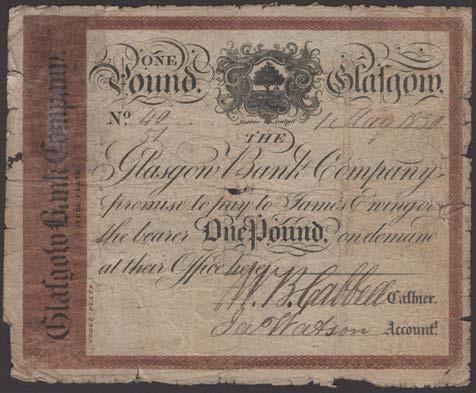 ONE
Pound. Glasgow.
No. 49
51
1 Aug 1830
THE
Glasgow Bank Company
promise to pay to James Ewing or
the bearer One Pound, on demand
at their Office here
Cashier.
Jas Watson Accountt.
Glasgow Bank Company.
STEEL PLATE
STEEL PLATE